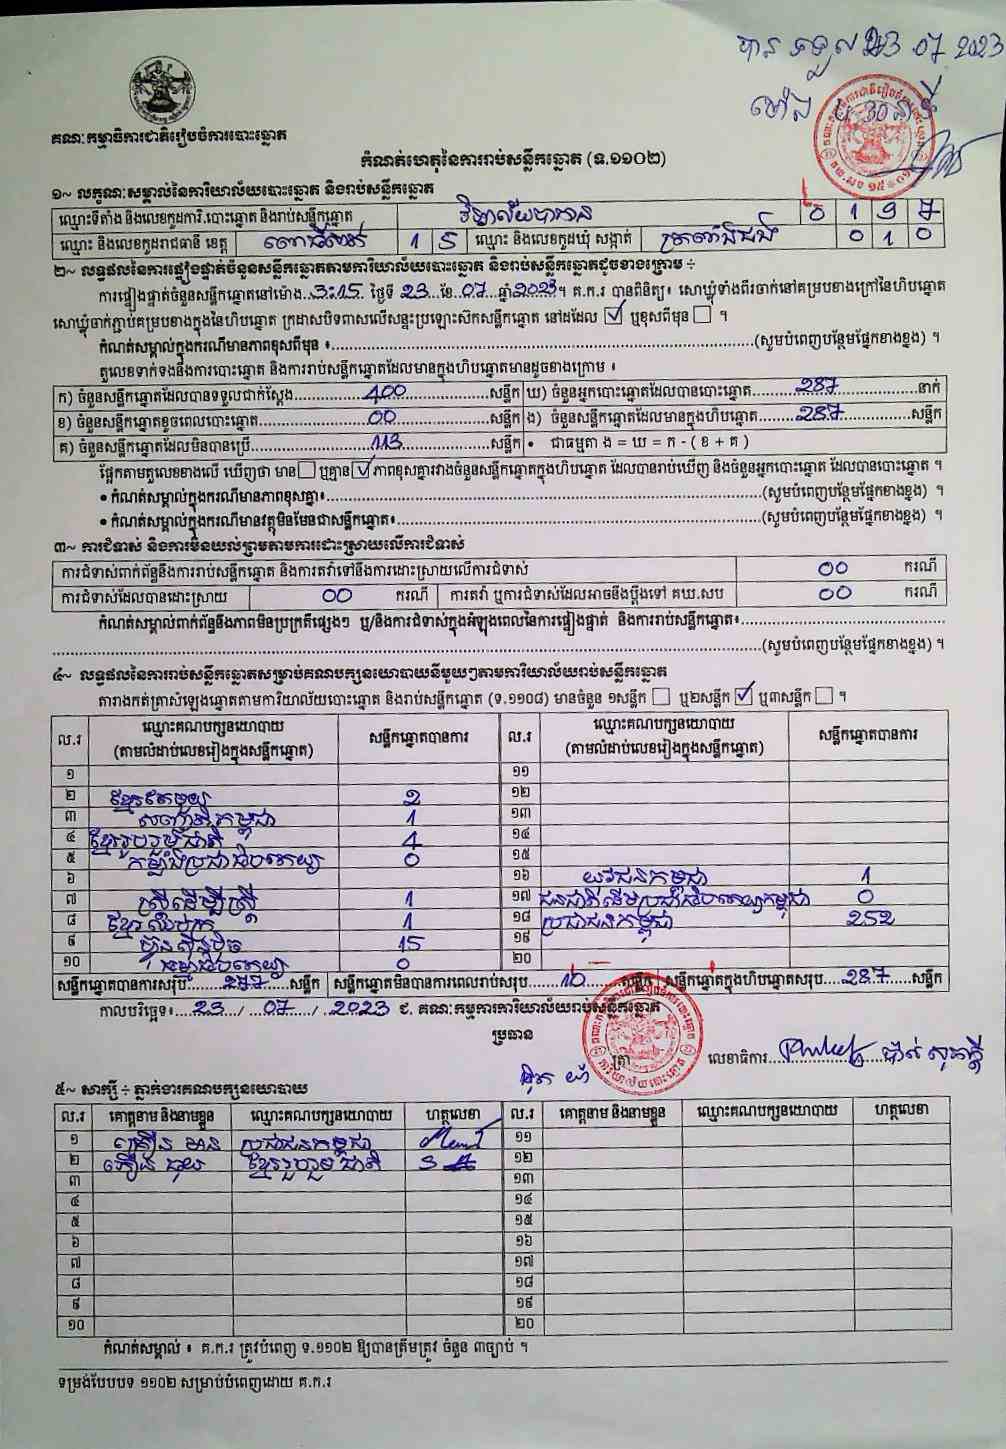 បានទទួល 23.07.2023
ម៉ោង 4 30 នាទី
គណៈកម្មាធិការជាតិរៀបចំការបោះឆ្នោត
កំណត់ហេតុនៃការរាប់សន្លឹកឆ្នោត (ទ.១១០២)
១~ លក្ខណៈសម្គាល់នៃការិយាល័យបោះឆ្នោត និងរាប់សន្លឹកឆ្នោត
ឈ្មោះទីតាំង និងលេខកូដការិ.បោះឆ្នោត និងរាប់សន្លឹកឆ្នោត វិទ្យាល័យបាកាន 0 1 9 7
ឈ្មោះ និងលេខកូដរាជធានី ខេត្ត ពោធិ៍សាត់ 1 5 ឈ្មោះ និងលេខកូដឃុំ សង្កាត់ ត្រពាំងជង 0 1 0
២~ លទ្ធផលនៃការផ្ទៀងផ្ទាត់ចំនួនសន្លឹកឆ្នោតតាមការិយាល័យបោះឆ្នោត និងរាប់សន្លឹកឆ្នោតដូចខាងក្រោម ÷
ការផ្ទៀងផ្ទាត់ចំនួនសន្លឹកឆ្នោតនៅម៉ោង 3:15 ថ្ងៃទី 23 ខែ 07 ឆ្នាំ 2023។ គ.ក.រ បានពិនិត្យ៖ សោឃ្លុំទាំងពីរចាក់នៅគម្របខាងក្រៅនៃហិបឆ្នោត
សោឃ្លុំចាក់ភ្ជាប់គម្របខាងក្នុងនៃហិបឆ្នោត ក្រដាសបិទពាសលើសន្ទះប្រឡោះស៊កសន្លឹកឆ្នោត នៅដដែល ☑ ឬខុសពីមុន ☐ ។
កំណត់សម្គាល់ក្នុងករណីមានភាពខុសពីមុន ៖ (សូមបំពេញបន្ថែមផ្នែកខាងខ្នង) ។
តួលេខទាក់ទងនឹងការបោះឆ្នោត និងការរាប់សន្លឹកឆ្នោតដែលមានក្នុងហិបឆ្នោតមានដូចខាងក្រោម ៖
ក) ចំនួនសន្លឹកឆ្នោតដែលបានទទួលជាក់ស្តែង 400 សន្លឹក ឃ) ចំនួនអ្នកបោះឆ្នោតដែលបានបោះឆ្នោត 287 នាក់
ខ) ចំនួនសន្លឹកឆ្នោតខូចពេលបោះឆ្នោត 00 សន្លឹក ង) ចំនួនសន្លឹកឆ្នោតដែលមានក្នុងហិបឆ្នោត 287 សន្លឹក
គ) ចំនួនសន្លឹកឆ្នោតដែលមិនបានប្រើ 113 សន្លឹក • ជាធម្មតា ង = ឃ = ក - ( ខ + គ )
ផ្អែកតាមតួលេខខាងលើ ឃើញថា មាន ☐ ឬគ្មាន ☑ ភាពខុសគ្នារវាងចំនួនសន្លឹកឆ្នោតក្នុងហិបឆ្នោត ដែលបានរាប់ឃើញ និងចំនួនអ្នកបោះឆ្នោត ដែលបានបោះឆ្នោត ។
• កំណត់សម្គាល់ក្នុងករណីមានភាពខុសគ្នា៖ (សូមបំពេញបន្ថែមផ្នែកខាងខ្នង) ។
• កំណត់សម្គាល់ក្នុងករណីមានវត្ថុមិនមែនជាសន្លឹកឆ្នោត៖ (សូមបំពេញបន្ថែមផ្នែកខាងខ្នង) ។
៣~ ការជំទាស់ និងការមិនយល់ព្រមតាមការដោះស្រាយលើការជំទាស់
ការជំទាស់ពាក់ព័ន្ធនឹងការរាប់សន្លឹកឆ្នោត និងការតវ៉ាទៅនឹងការដោះស្រាយលើការជំទាស់ 00 ករណី
ការជំទាស់ដែលបានដោះស្រាយ 00 ករណី ការតវ៉ា ឬការជំទាស់ដែលអាចនឹងប្តឹងទៅ គឃ.សប 00 ករណី
កំណត់សម្គាល់ពាក់ព័ន្ធនឹងភាពមិនប្រក្រតីផ្សេងៗ ឬ/និងការជំទាស់ក្នុងអំឡុងពេលនៃការផ្ទៀងផ្ទាត់ និងការរាប់សន្លឹកឆ្នោត៖
(សូមបំពេញបន្ថែមផ្នែកខាងខ្នង) ។
៤~ លទ្ធផលនៃការរាប់សន្លឹកឆ្នោតសម្រាប់គណបក្សនយោបាយនីមួយៗតាមការិយាល័យរាប់សន្លឹកឆ្នោត
តារាងកត់ត្រាសំឡេងឆ្នោតតាមការិយាល័យបោះឆ្នោត និងរាប់សន្លឹកឆ្នោត (ទ.១១០៨) មានចំនួន ១សន្លឹក ☐ ឬ២សន្លឹក ☑ ឬ៣សន្លឹក ☐ ។
ល.រ ឈ្មោះគណបក្សនយោបាយ (តាមលំដាប់លេខរៀងក្នុងសន្លឹកឆ្នោត) សន្លឹកឆ្នោតបានការ ល.រ ឈ្មោះគណបក្សនយោបាយ (តាមលំដាប់លេខរៀងក្នុងសន្លឹកឆ្នោត) សន្លឹកឆ្នោតបានការ
១ ១១
២ ខ្មែរតែមួយ 2 ១២
៣ សញ្ជាតិកម្ពុជា 1 ១៣
៤ ខ្មែររួបរួមជាតិ 4 ១៤
៥ កម្លាំងប្រជាធិបតេយ្យ 0 ១៥
៦ ១៦ យុវជនកម្ពុជា 1
៧ ស្រីដើម្បីស្ត្រី 1 ១៧ ជនជាតិដើមប្រជាធិបតេយ្យកម្ពុជា 0
៨ ខ្មែរឈប់ក្រ 1 ១៨ ប្រជាជនកម្ពុជា 252
៩ ហ៊្វុនស៊ិនប៉ិច 15 ១៩
១០ ធម្មាធិបតេយ្យ 0 ២០
សន្លឹកឆ្នោតបានការសរុប 277 សន្លឹក សន្លឹកឆ្នោតមិនបានការពេលរាប់សរុប 10 សន្លឹក សន្លឹកឆ្នោតក្នុងហិបឆ្នោតសរុប 287 សន្លឹក
កាលបរិច្ឆេទ៖ 23 / 07 / 2023 ជ. គណៈកម្មការការិយាល័យរាប់សន្លឹកឆ្នោត
ប្រធាន
ត្រា លេខាធិការ
៥~ សាក្សី ÷ ភ្នាក់ងារគណបក្សនយោបាយ
ល.រ គោត្តនាម និងនាមខ្លួន ឈ្មោះគណបក្សនយោបាយ ហត្ថលេខា ល.រ គោត្តនាម និងនាមខ្លួន ឈ្មោះគណបក្សនយោបាយ ហត្ថលេខា
១ គឿន មាន ប្រជាជនកម្ពុជា ១១
២ ខ្មែររួបរួមជាតិ ១២
៣ ១៣
៤ ១៤
៥ ១៥
៦ ១៦
៧ ១៧
៨ ១៨
៩ ១៩
១០ ២០
កំណត់សម្គាល់ ៖ គ.ក.រ ត្រូវបំពេញ ទ.១១០២ ឱ្យបានត្រឹមត្រូវ ចំនួន ៣ច្បាប់ ។
ទម្រង់បែបបទ ១១០២ សម្រាប់បំពេញដោយ គ.ក.រ